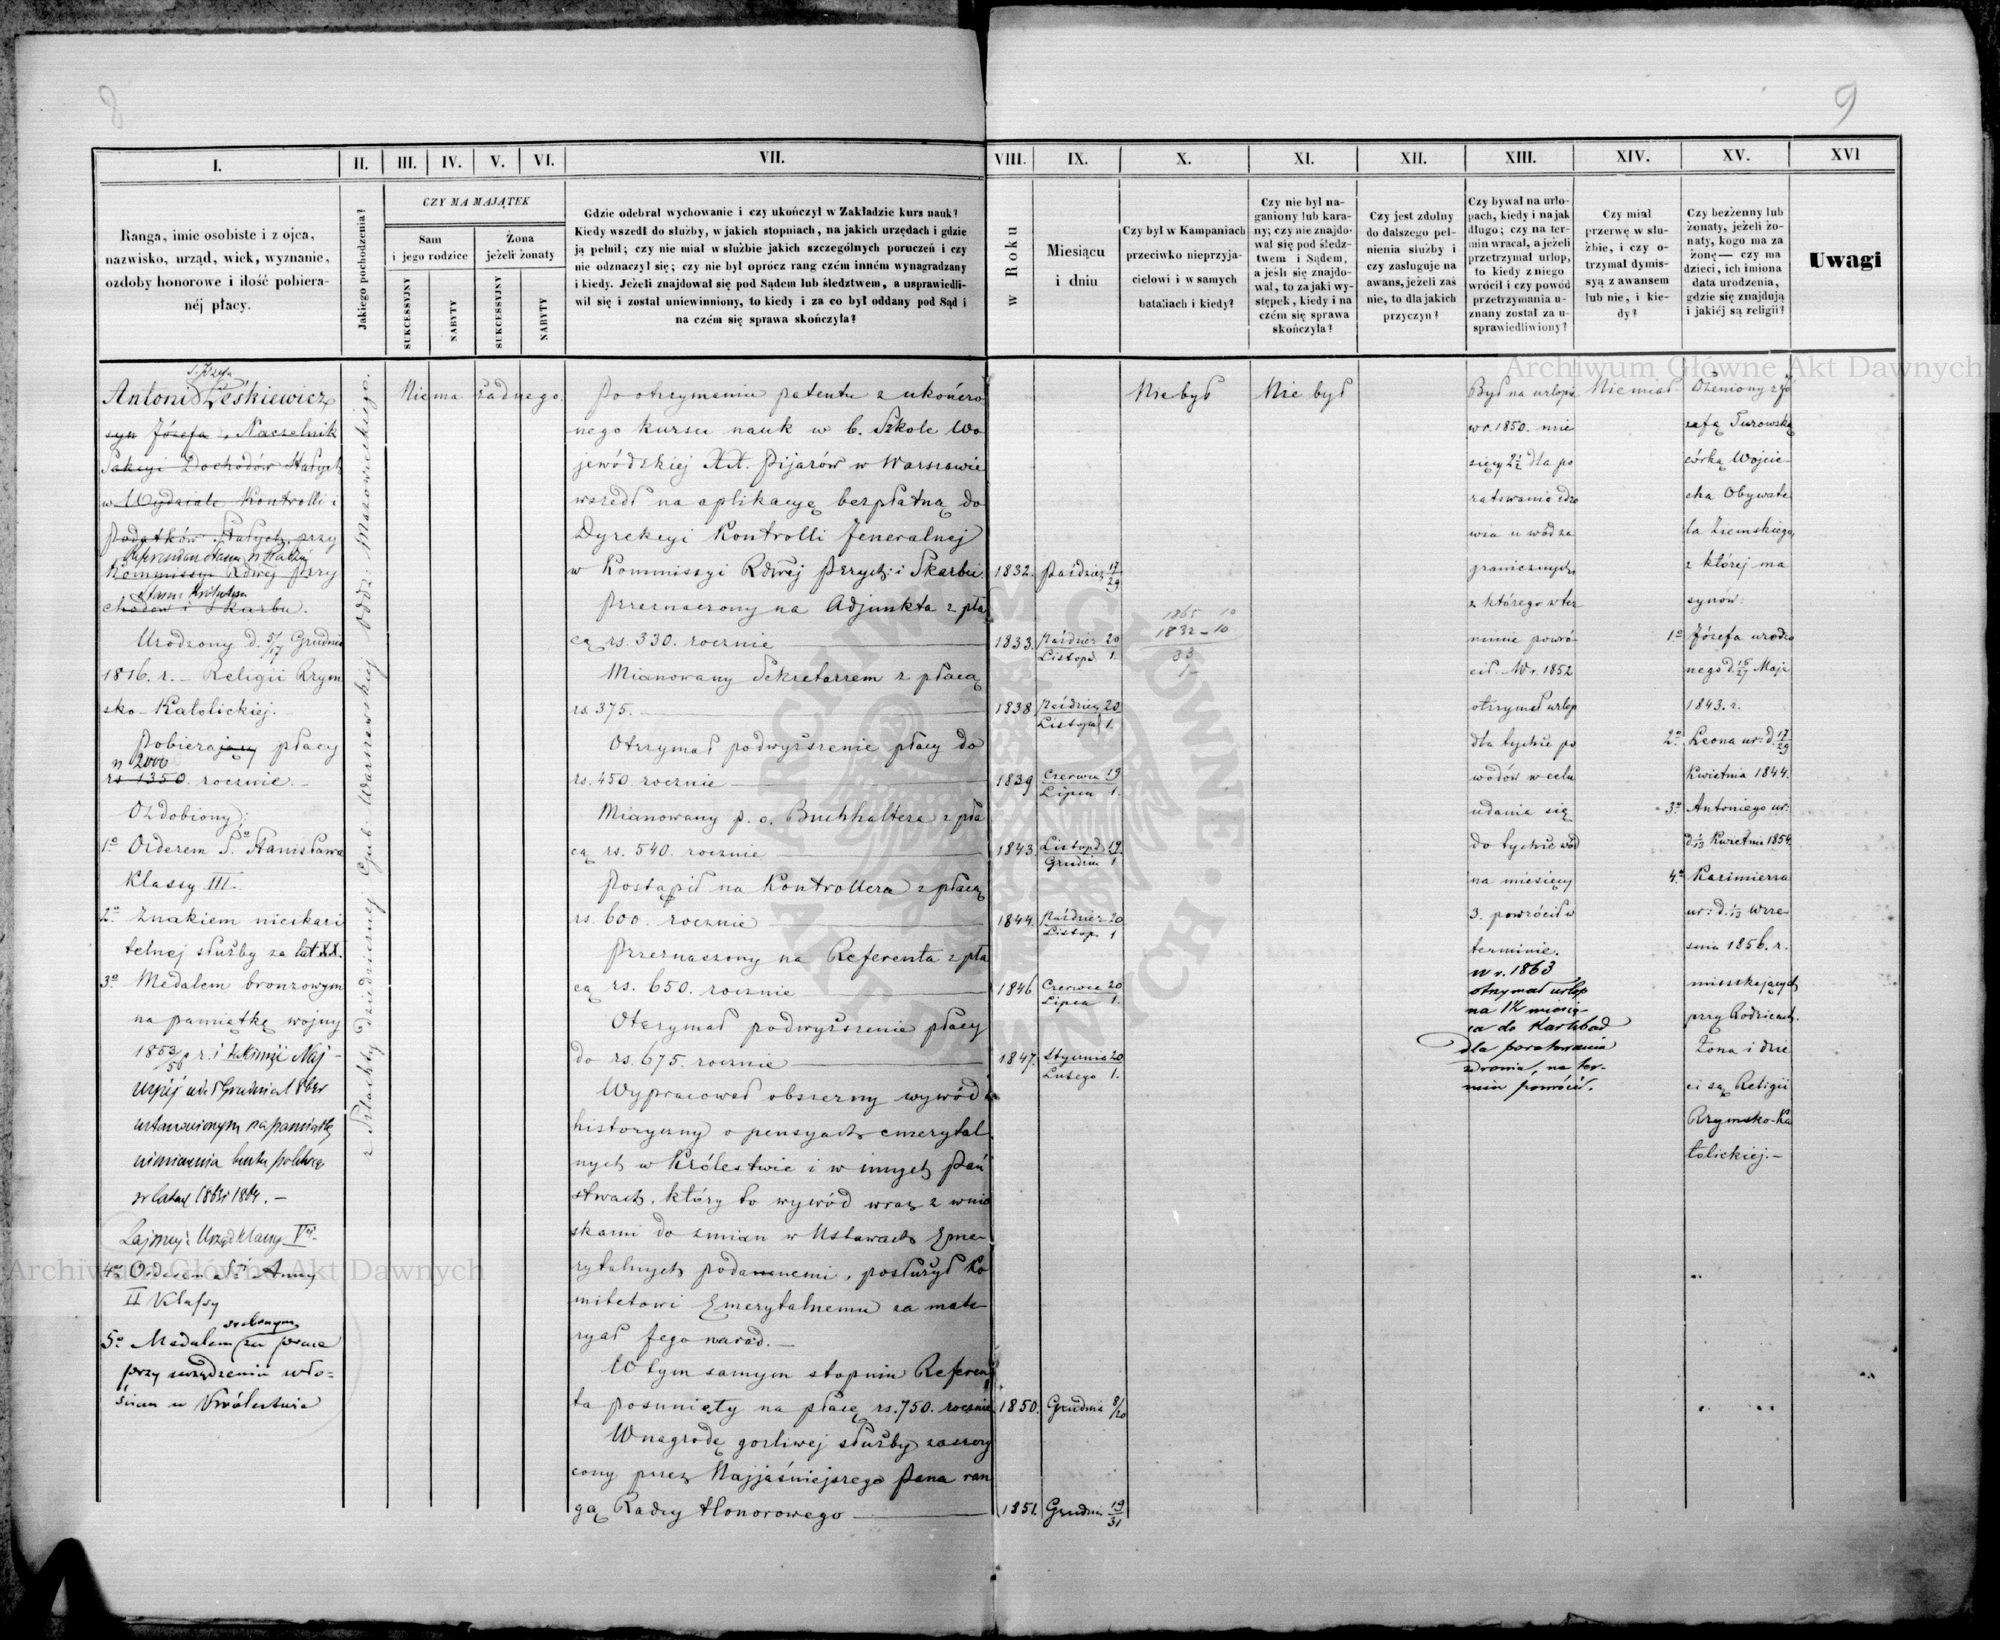 8
9
I.
II.
III.
IV.
V.
VI.
VII.
VIII.
IX.
X.
XI.
XII.
XIII.
XIV.
XV.
XVI
Ranga, imie osobiste i z ojca,
nazwisko, urząd, wiek, wyznanie,
ozdoby honorowe i ilość pobiera-
néj płacy.
Jakiego pochodzenia?
CZY MA MAJĄTEK
Sam
i jego rodzice
Żona
jeżeli żonaty
SUKCESSYJNY
NABYTY
SUKCESSYJNY
NABYTY
Gdzie odebrał wychowanie i czy ukończył w Zakładzie kurs nauk?
Kiedy wszedł do służby, w jakich stopniach, na jakich urzędach i gdzie
ją pełnił; czy nie miał w służbie jakich szczególnych poruczeń i czy
nie odznaczył się; czy nie był oprócz rang czém inném wynagradzany
i kiedy. Jeżeli znajdował się pod Sądem lub śledztwem, a usprawiedli-
wił się i został uniewinniony, to kiedy i za co był oddany pod Sąd i
na czém się sprawa skończyła?
w Roku
Miesiącu
i dniu
Czy był w Kampaniach
przeciwko nieprzyja-
cielowi i w samych
bataliach i kiedy?
Czy nie był na-
ganiony lub kara-
ny; czy nie znajdo-
wał się pod śledz-
twem i Sądem,
a jeśli się znajdo-
wał, to za jaki wy-
stępek, kiedy i na
czém się sprawa
skończyła?
Czy jest zdolny
do dalszego peł-
nienia służby i
czy zasługuje na
awans, jeżeli zaś
nie, to dla jakich
przyczyn?
Czy bywał na urlo-
pach, kiedy i na jak
długo; czy na ter-
min wracał, a jeżeli
przetrzymał urlop,
to kiedy z niego
wrócił i czy powód
przetrzymania u-
znany został za u-
sprawiedliwiony?
Czy miał
przerwę w słu-
żbie, i czy o-
trzymał dymis-
syą z awansem
lub nie, i kie-
dy?
Czy bezżenny lub
żonaty, jeżeli żo-
naty, kogo ma za
żonę— czy ma
dzieci, ich imiona
data urodzenia,
gdzie się znajdują
i jakiéj są religii?
Uwagi
Antoni Leśkiewicz
syn Józefa, Naczelnik
Sekcyi Dochodów Stałych
w Wydziale Kontrolli i
Podatków Stałych, przy
Kommissyi Rdwej Przy
chodów i Skarbu.
Urodzony d. 5/17 Grudnia
1816. r. – Religii Rzym
sko-Katolickiej.
Pobierający płacy
2000
rs 1350 rocznie. –
Ozdobiony:
1º Orderem Sgo Stanisława
Klassy III.
2º Znakiem nieskazi
telnej służby za lat XX.
3º Medalem bronzowym
na pamiątkę wojny
1853/56 r. i
ustanowionym na pamiątkę
w latach 1863 i 1864. –
4º Orderem Anny
II Klassy
5º Medalem za prace
przy urządzeniu wło-
ścian w Królestwie
z Szlachty dziedzicznej Gub: Warszawskiej Oddz: Mazowieckiego.
Nie ma żadnego.
Po otrzymaniu patentu z ukończo
nego kursu nauk w 6. Szkole Wo
jewódzkiej XX. Pijarów w Warszawie
wszedł na aplikacyę bezpłatną do
Dyrekcyi Kontrolli Jeneralnej
w Kommissyi Rdwej Przych: i Skarbu.
1832. Paździer 17/29
Przeznaczony na Adjunkta z pła
cą rs. 330. rocznie
1833. Paździer 20 Listopa 1.
Mianowany Sekretarzem z płacą
rs. 375.
1838 Paździer 20 Listopad 1.
Otrzymał podwyższenie płacy do
rs. 450 rocznie
1839 Czerwca 19 Lipca 1.
Mianowany p. o. Buchhaltera z pła
cą rs. 540. rocznie
1843. Listopd 19 Grudnia 1
Postąpił na Kontrollera z płacą
rs. 600. rocznie
1844. Paździer 20 Listop. 1
Przeznaczony na Referenta z pła
cą rs. 650. rocznie
1846. Czerwca 20 Lipca 1.
Otrzymał podwyższenie płacy
do rs. 675. rocznie
1847. Stycznia 20 Lutego 1.
Wypracował obszerny wywód
historyczny o pensyach emerytal
nych w Królestwie i w innych Pań
stwach, który to wywód wraz z wnio
skami do zmian w Ustawach Eme-
rytalnych podanemi, posłużył Ko
mitetowi Emerytalnemu za mate-
ryał Jego narad. –
W tym samym stopniu Referen
ta posunięty na płacę rs. 750. rocznie
1850. Grudnia 8/20
W nagrodę gorliwej służby zaszczy
cony przez Najjaśniejszego Pana ran
gą Radcy Honorowego
1851. Grudnia 19/31
Nie był
1865 10
1832 – 10
33
1 –
Nie był
Był na urlopie
w r. 1850. mie
sięcy 2½ dla po
ratowania zdro
wia u wód za
granicznych
z którego w ter
minie powró-
cił. W r. 1852
otrzymał urlop
dla tychże po
wodów w celu
udania się
do tychże wód
na miesięcy
3. powrócił w
terminie.
w r. 1863
otrzymał urlop
na 1½ miesią-
ca do Karlsbad
dla poratowania
zdrowia, na ter-
min powrócił.
Nie miał
Ożeniony z Jó
zefą Turowską
córką Wojcie-
cha Obywate
la Ziemskiego,
z której ma
synów:
1º Józefa urodzo
nego d. 15/27 Maja
1843. r.
2º Leona ur: d. 17/29
Kwietnia 1844.
3º Antoniego ur:
d. 1/13 Kwietnia 1854.
4º Kazimierza
ur: d. 1/13 Wrze
śnia 1856. r.
mieszkających
przy Rodzicach.
Żona i dzie
ci są Religii
Rzymsko-Ka
tolickiej. –
Archiwum Główne Akt Dawnych
Archiwum Główne Akt Dawnych
ARCHIWUM GŁÓWNE AKT DAWNYCH